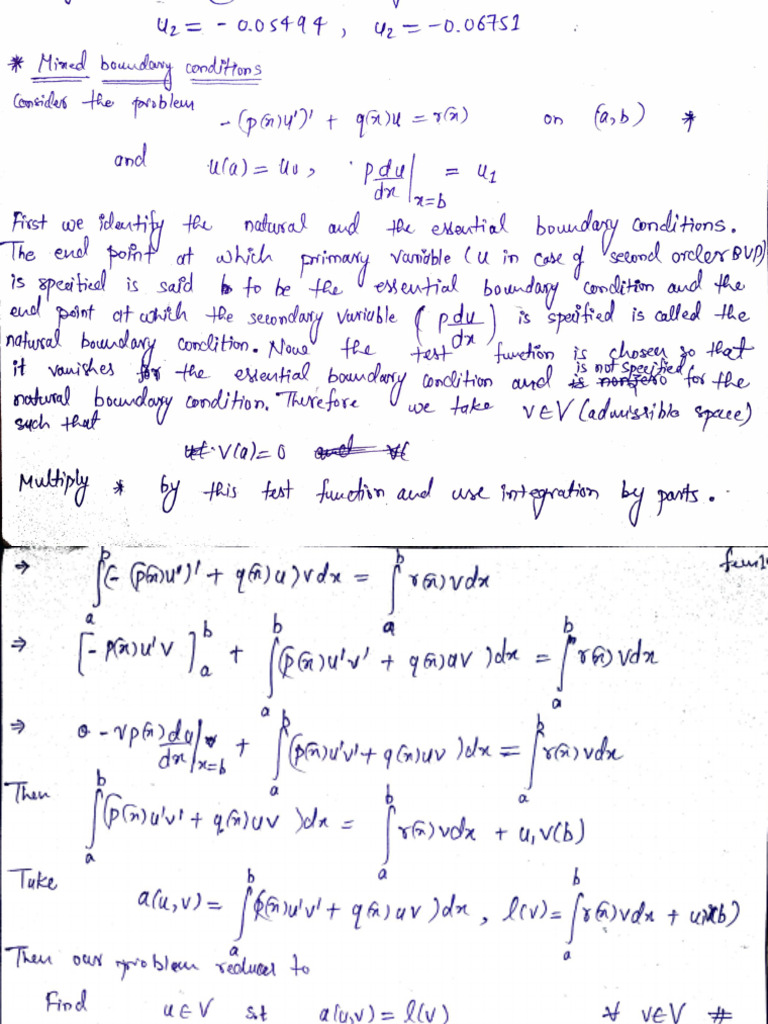 u₂ = - 0.05494 , u₂ = -0.06751
* Mixed boundary conditions
Consider the problem
-(p(x)u')' + q(x)u = r(x) on (a,b) *
and u(a) = u₀ , p du/dx |x=b = u₁
First we identify the natural and the essential boundary conditions.
The end point at which primary variable (u in case of second order BVP)
is specified is said to be the essential boundary condition and the
end point at which the secondary variable (p du/dx) is specified is called the
natural boundary condition. Now the test function is chosen so that
it vanishes for the essential boundary condition and is not specified for the
natural boundary condition. Therefore we take v∈V (admissible space)
such that
v(a) = 0
Multiply * by this test function and use integration by parts.
⇒ ∫ₐᵇ (- (p(x)u')' + q(x)u) v dx = ∫ₐᵇ r(x) v dx
⇒ [-p(x)u'v]ₐᵇ + ∫ₐᵇ (p(x)u'v' + q(x)uv) dx = ∫ₐᵇ r(x) v dx
⇒ 0 - v p(x) du/dx |x=b + ∫ₐᵇ (p(x)u'v' + q(x)uv) dx = ∫ₐᵇ r(x) v dx
Then
∫ₐᵇ (p(x)u'v' + q(x)uv) dx = ∫ₐᵇ r(x) v dx + u₁v(b)
Take
a(u,v) = ∫ₐᵇ (p(x)u'v' + q(x)uv) dx , l(v) = ∫ₐᵇ r(x) v dx + u₁v(b)
Then our problem reduces to
Find u∈V s.t a(u,v) = l(v) ∀ v∈V #